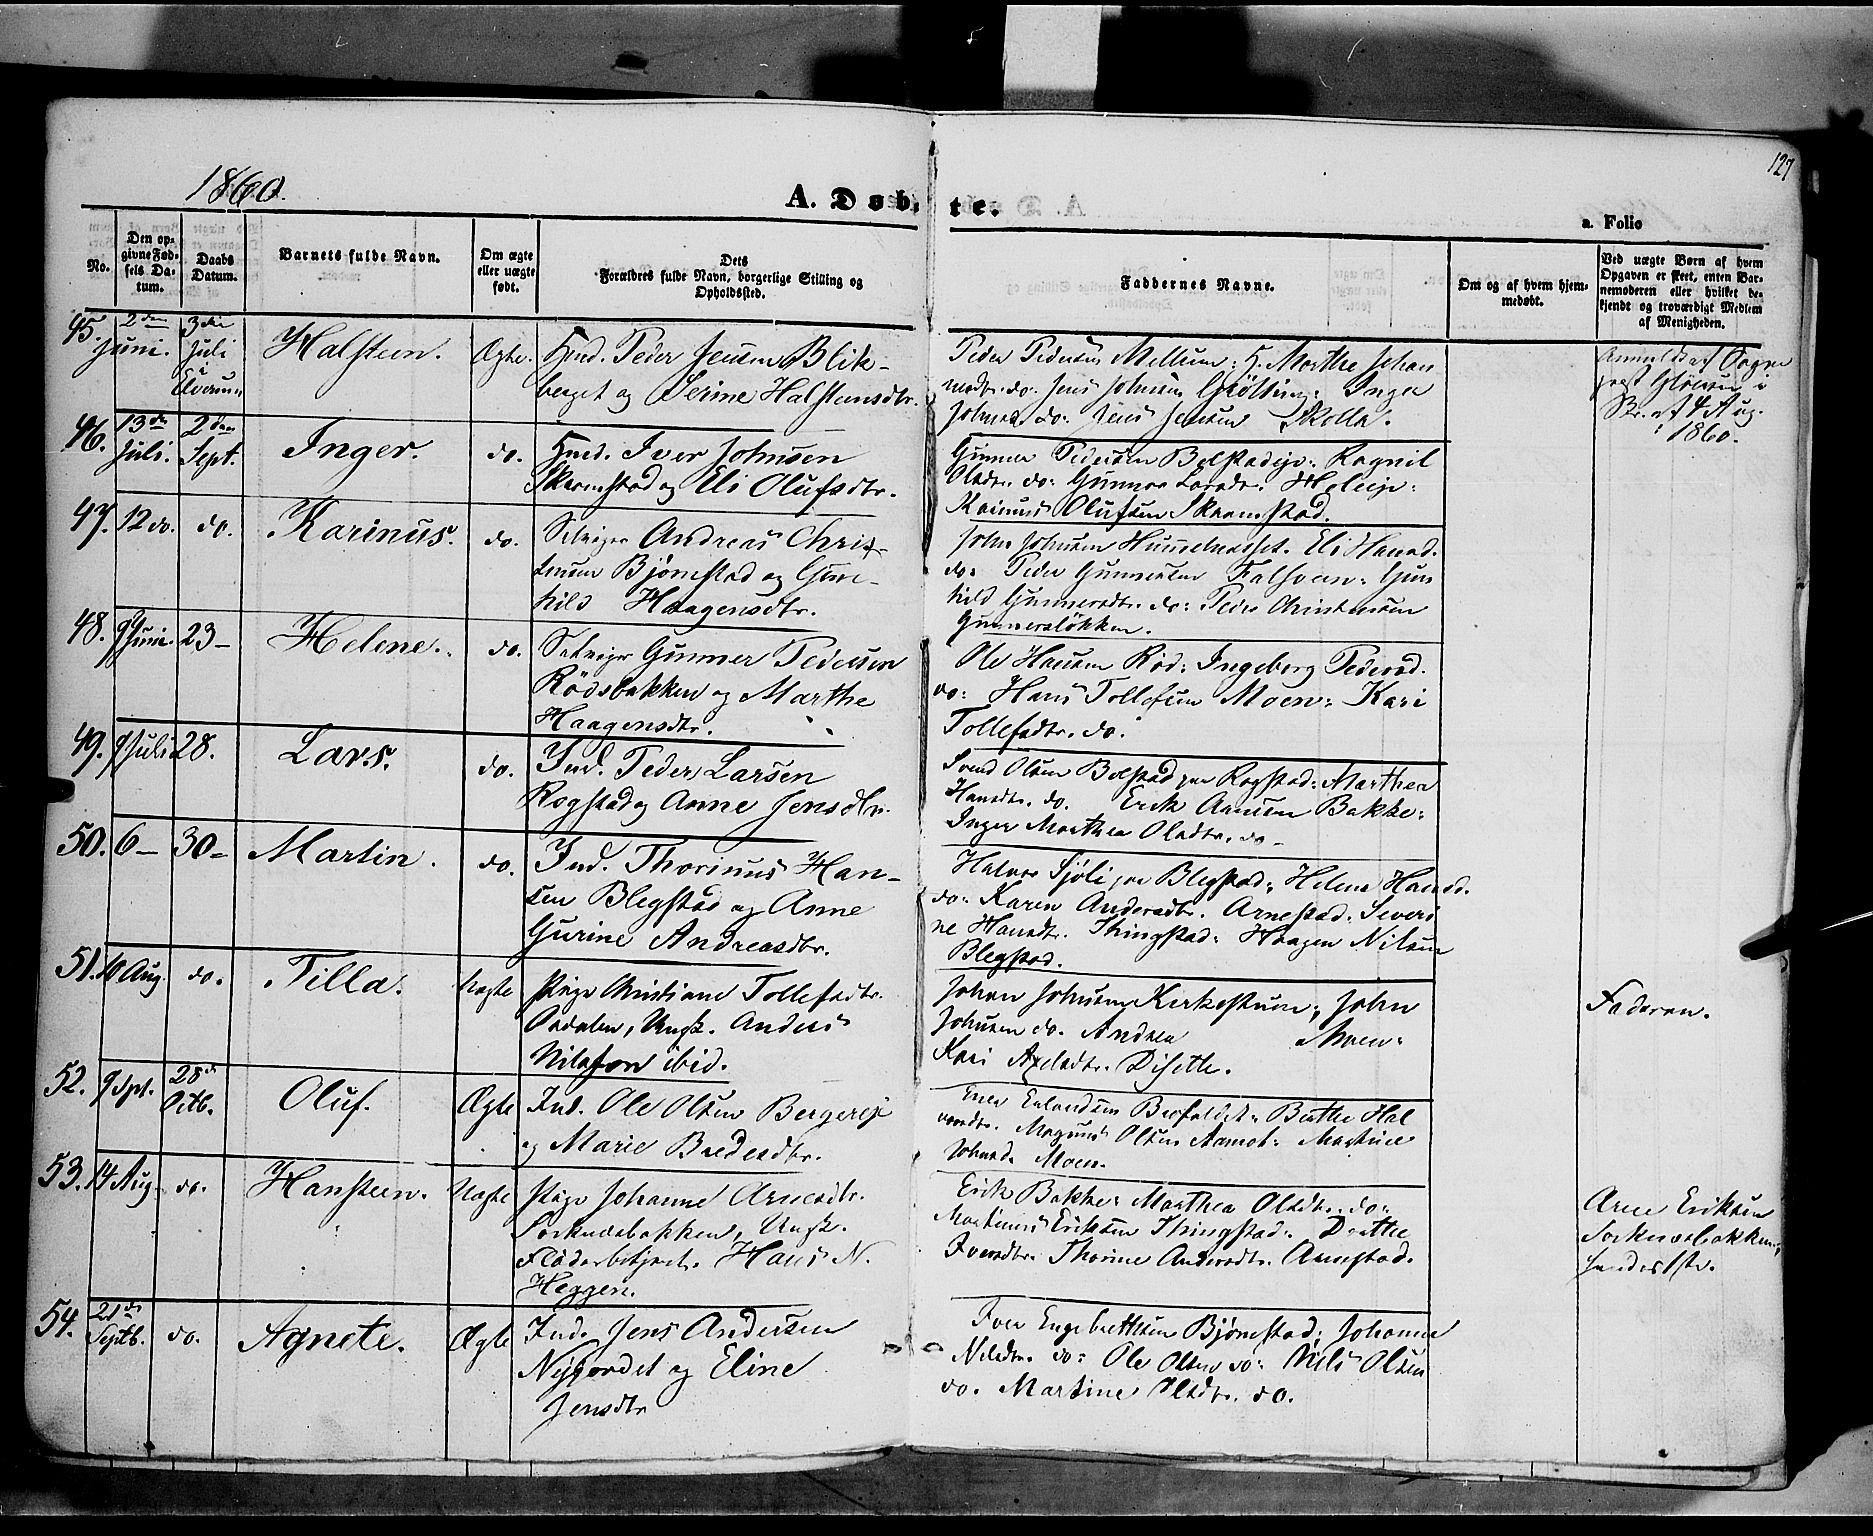 127
1860.
A. Døbte.
a. Folio
No.
Den opgivne Fødsels Datum.
Daabs Datum.
Barnets fulde Navn.
Om ægte eller uægte født.
Dets Forældres fulde Navn, borgerlige Stilling og Opholdssted.
Faddernes Navne.
Om og af hvem hjemmedøbt.
Ved uægte Børn af hvem Opgaven er skeet, enten Barnemoderen eller hvilket bekjendt og troværdigt Medlem af Menigheden.
45. 2den Juni. 3die Juli i Elverum Halsteen. Ægte.
Peder Jensen Blik-
berget og Serine Halsteensdtr.
Peder Pedersen Mellum: H. Marthe Johan
do. Jens Johnsen Grötting: Inger
do: Jens Jensen Skolla.
i
Br. af 4 Aug.
1860.
46. 13de Juli. 2den Sept. Inger. do.
Iver Johnsen
Skramstad og Eli Olufsdtr.
Gunner Pedersen Bolstadeje: Ragnil
Olsdtr. do: Gunnor
Karinus Olufsen Skramstad.
47. 12 do. do. Karinus. do.
Selveier Andreas Chris-
tensen Bjørnstad og Gun-
hild Haagensdtr.
John Johnsen Hummelnæsset. Eli Hansd.
do: Peder Gunnersen Falsveen: Gun
hild Gunnersdtr. do: Peder Christensen
Gunnersløkken.
48. 9 Juni. 23- Helene. do.
Selveier Gunner Pedersen
Rödsbakken og Marthe
Haagensdtr.
Ole Hansen Röd: Ingeborg Pedersd.
do: Hans Tollefsen Moen: Kari
Tollefsdtr. do:
49. 9 Juli 28. Lars. do.
Ind. Peder Larsen
Rogstad og Anne Jensdtr.
Svend Olsen Bolstad Rogstad: Marthea
Hansdtr. do. Erik Arnesen Bakke:
Inger Marthea Olsdtr. do-
50. 6- 30- Martin. do.
Ind. Thorinus Han-
sen Blegstad og Anne
Gurine Andreasdtr.
Halvor Sjöli Blegstad: Helene Hansd.
do: Karen Andersdtr. Arnestad. Severi
ne Hansdtr. Thingstad: Haagen Nilsen
Blegstad.
51. 10 Aug. do. Tilla. Uægte
Pige Christiane Tollefsdtr.
Osdalen, Ungk. Anders
Nilsson ibid.
Johan Johnsen Kirkestuen; John
Johnsen do. Andrea Moen:
Kari Axelsdtr. Disette.
Faderen.
52. 9 Spt. 28de Octb. Oluf. Ægte
Ind. Ole Olsen Bergereje
og Marie Bredesdtr.
Erlandsen Berthe Hal
vorsdtr. Magnus Olsen Aamot: Martine
Johnsd. Moen.
53. 14 Aug. do. Hansteen. Uægte
Pige Johanne Arnesdtr.
Sorknæsbakken, Ungk.
Hans N.
Heggen.
Erik Bakke: Marthea Olsdtr. do:
Martinus Eriksen Thingstad: Dorthe
Iversdtr. Thorine Andersdtr. Arnestad.
Arne Eriksen
Sorknæsbakken,
54. 21de Septb. do. Agnete. Ægte
Ind. Jens Andersen
Nygordet og Eline
Jensdtr
Iver Engebrettsen Bjørnstad; Johanne
Nilsdtr. do: Ole Olsen do: Nils Olsen
do. Martine Olsdtr. do.